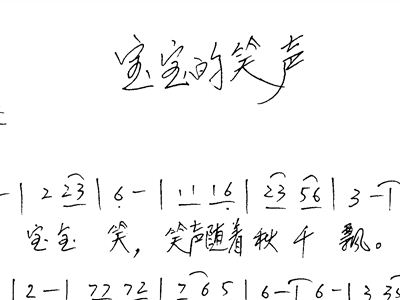 宝宝的笑声
- | 2 23 | 6 - | 11 16 | 23 56 | 3 - |
宝宝 笑，笑声随着秋千飘。
| 2 - | 77 72 | 7 6 5 | 6 - | 6 - | 3 35